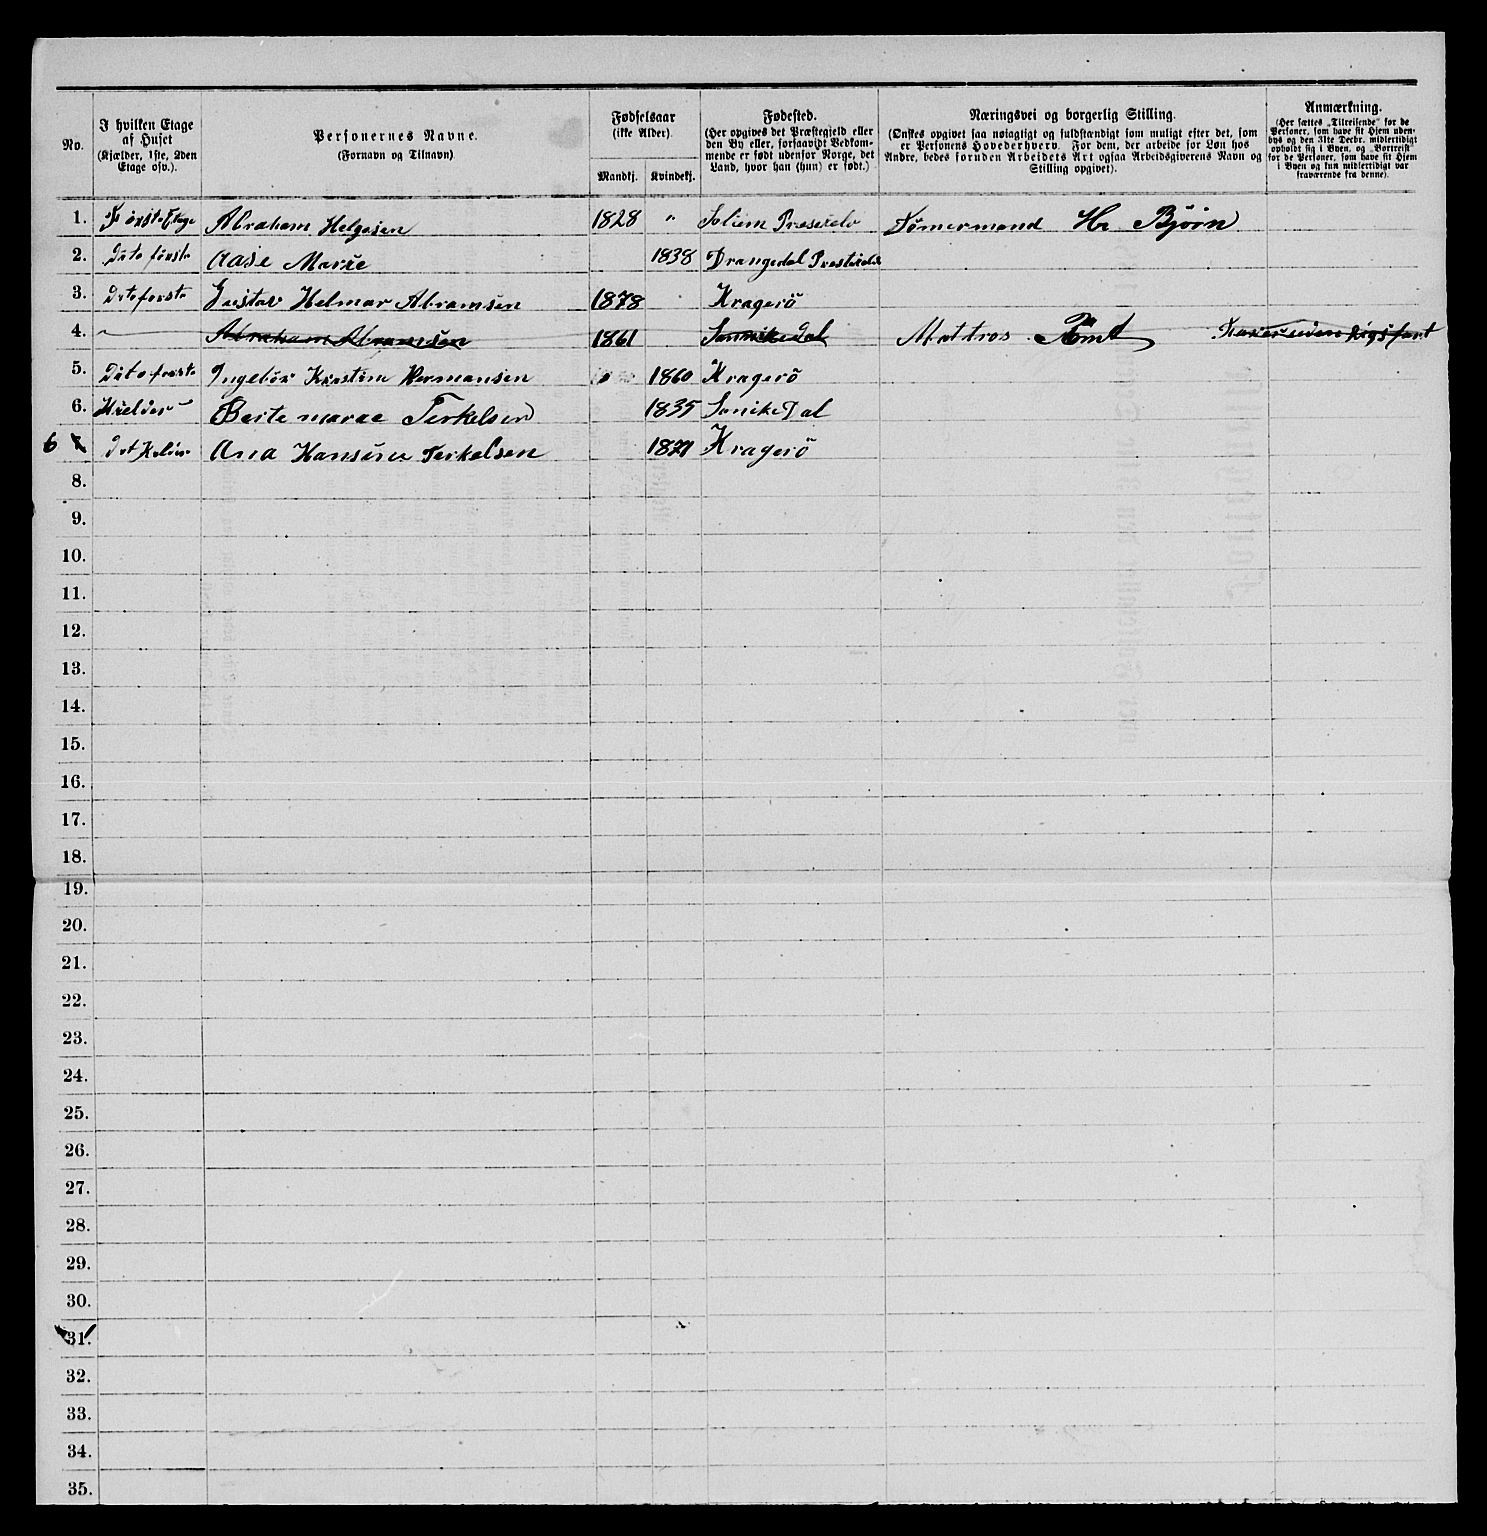 No. I hvilken Etage af Huset (Kjælder, 1ste, 2den Etage osv.). Personernes Navne. (Fornavn og Tilnavn) Fødselsaar (ikke Alder). Mandkj. Kvindekj. Fødested. (Her opgives det Præstegjeld eller den By eller, forsaavidt Vedkommende er født udenfor Norge, det Land, hvor han (hun) er født.) Næringsvei og borgerlig Stilling. (Ønskes opgivet saa nøiagtigt og fuldstændigt som muligt efter det, som er Personens Hovederhverv. For dem, der arbeide for Løn hos Andre, bedes foruden Arbeidets Art ogsaa Arbeidsgiverens Navn og Stilling opgivet). Anmærkning. (Her sættes „Tilreisende" for de Personer, som have sit Hjem udenbys og den 31te Decbr. midlertidigt opholdt sig i Byen, og „Bortreist" for de Personer, som have sit Hjem i Byen og kun midlertidigt var fraværende fra denne).
1. Förste Etage Abraham Helgesen 1828 " Soliem Tömermand Hr Björn
2. Dito förste Aase Marie 1838 Drangedal
3. Dito forste Gustav Helmar Abramsen 1878 Kragerö
4. Abraham Abramsen 1861 Sannikedal Mattros
5. Dito forste Ingebör Kristine Hermansen 1860 Kragerö
6. Kielder Berte marae Terkelsen 1835 Sanikedal
6 7. Ana Hansine Terkelsen Kragerö
8.
9.
10.
11.
12.
13.
14.
15.
16.
17.
18.
19.
20.
21.
22.
23.
24.
25.
26.
27.
28.
29.
30.
31.
32.
33.
34.
35.